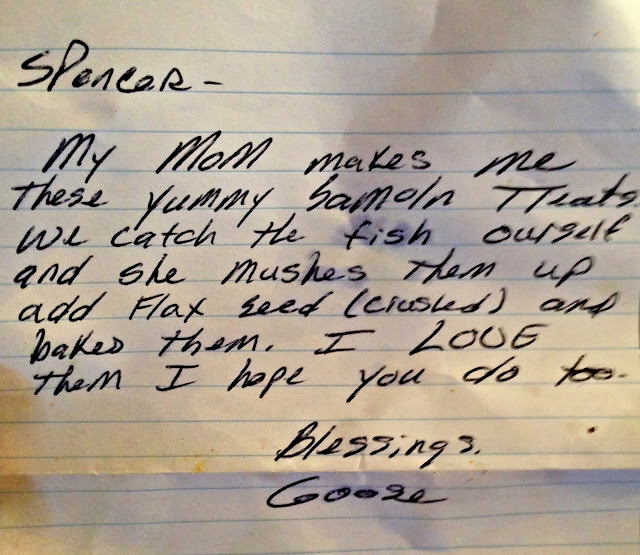 Spencer -
My Mom makes me
these yummy Samoln Treats
we catch the fish ourself
and she mushes them up
add Flax seed (crushed) and
bakes them. I LOVE
them I hope you do too.
Blessings.
Goose